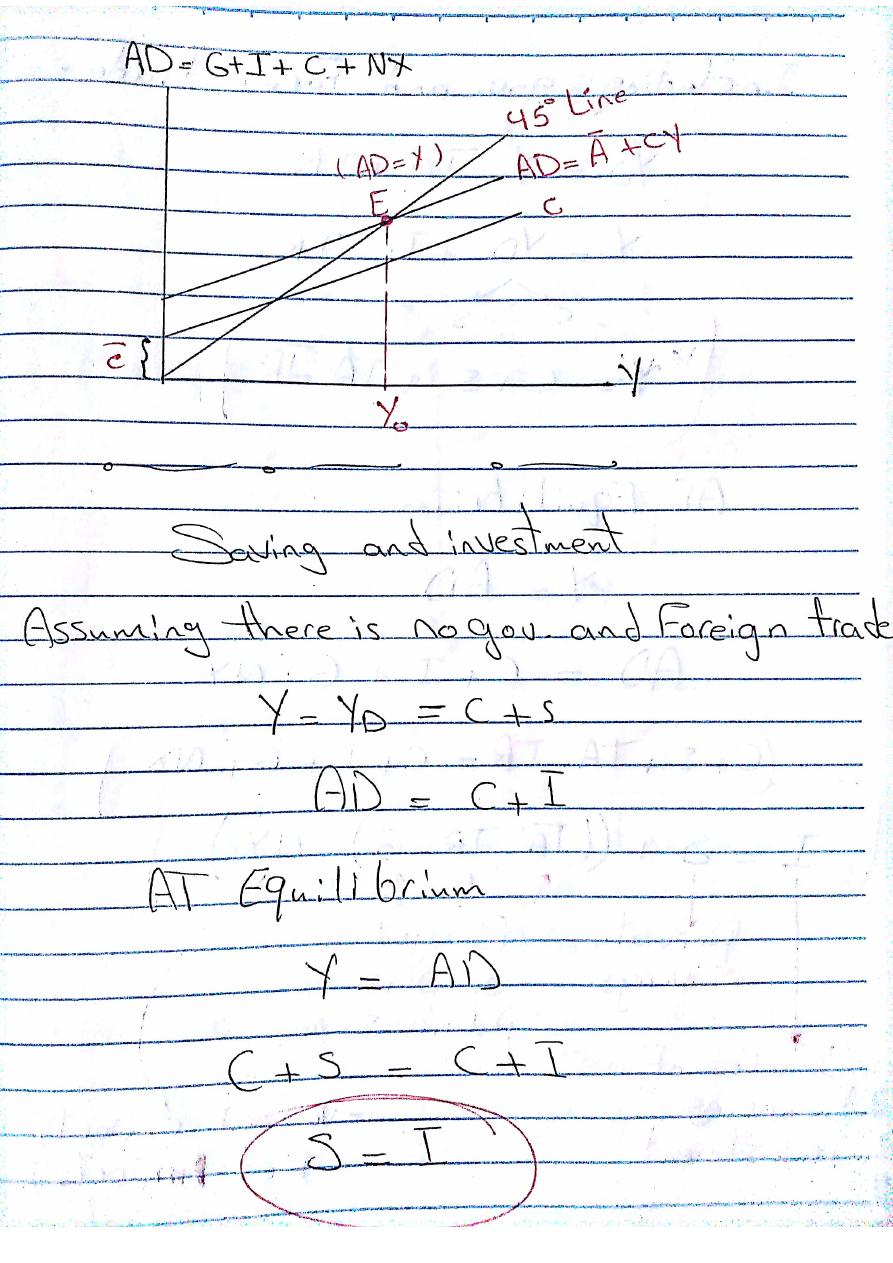 AD = G+I+C+NX
45° Line
(AD=Y)
AD= Ā +CY
E
C
c̄ {
Y
Y₀
Saving and investment
Assuming there is no gov. and Foreign trade
Y = YD = C+S
AD = C+I
AT Equilibrium
Y = AD
C+S = C+I
S = I